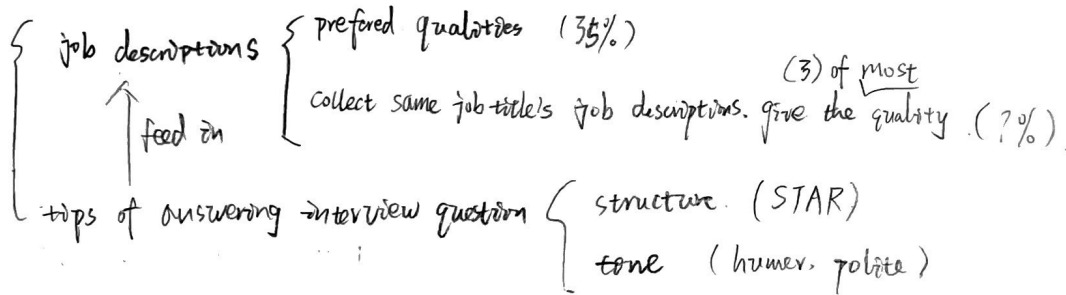 job descriptions
prefered qualities (35%)
(3) of most
Collect same job title's job descriptions. give the quality. (?%)
feed in
tips of answering interview question
structure. (STAR)
tone (humer, polite)